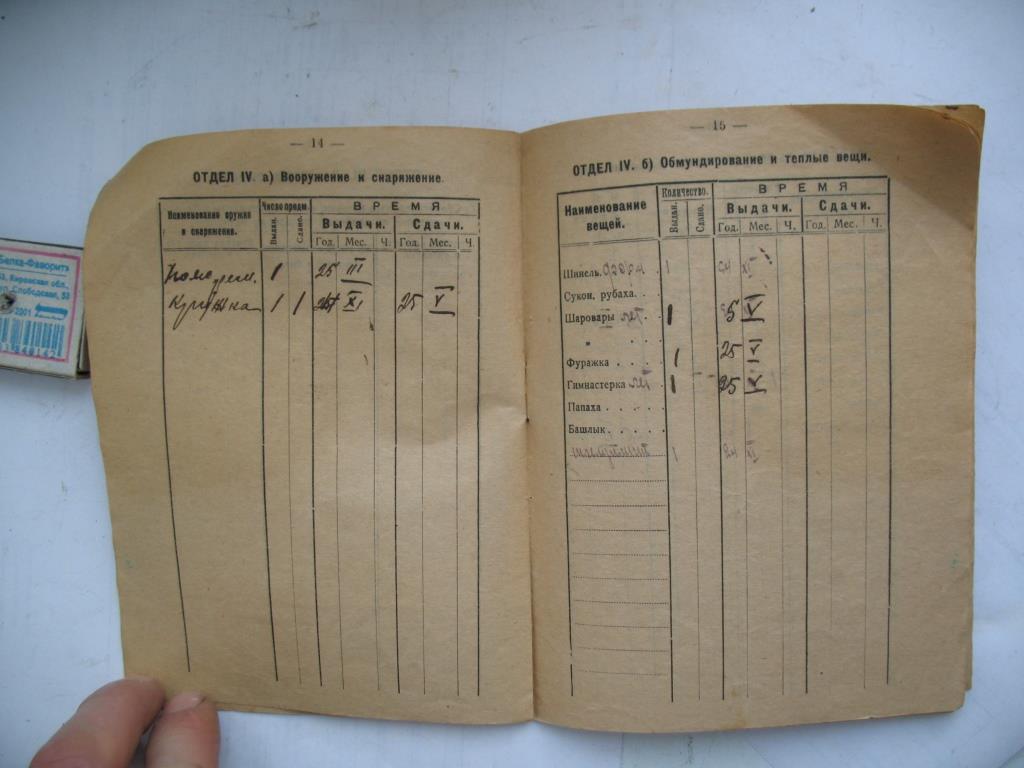 — 14 —
ОТДЕЛ IV. а) Вооружение и снаряжение.
Наименование оружия и снаряжения.
Число предм.
ВРЕМЯ
Выдан.
Сдано.
Выдачи.
Сдачи.
Год. Мес. Ч. Год. Мес. Ч.
1 25 III
Кружка 1 1 24 XI 25 V
— 15 —
ОТДЕЛ IV. б) Обмундирование и теплые вещи.
Наименование вещей.
Количество.
ВРЕМЯ
Выдан.
Сдано.
Выдачи.
Сдачи.
Год. Мес. Ч. Год. Мес. Ч.
Шинель 1 24 XI
Сукон. рубаха. . .
Шаровары лет. . 1 5 V
" . . 25 V
Фуражка . . . . 1
Гимнастерка лет 1 25 V
Папаха . . . . .
Башлык. . . . . .
1 24 XI
Белка-Фаворитъ
Кировская обл.,
Слободская, 53
2001